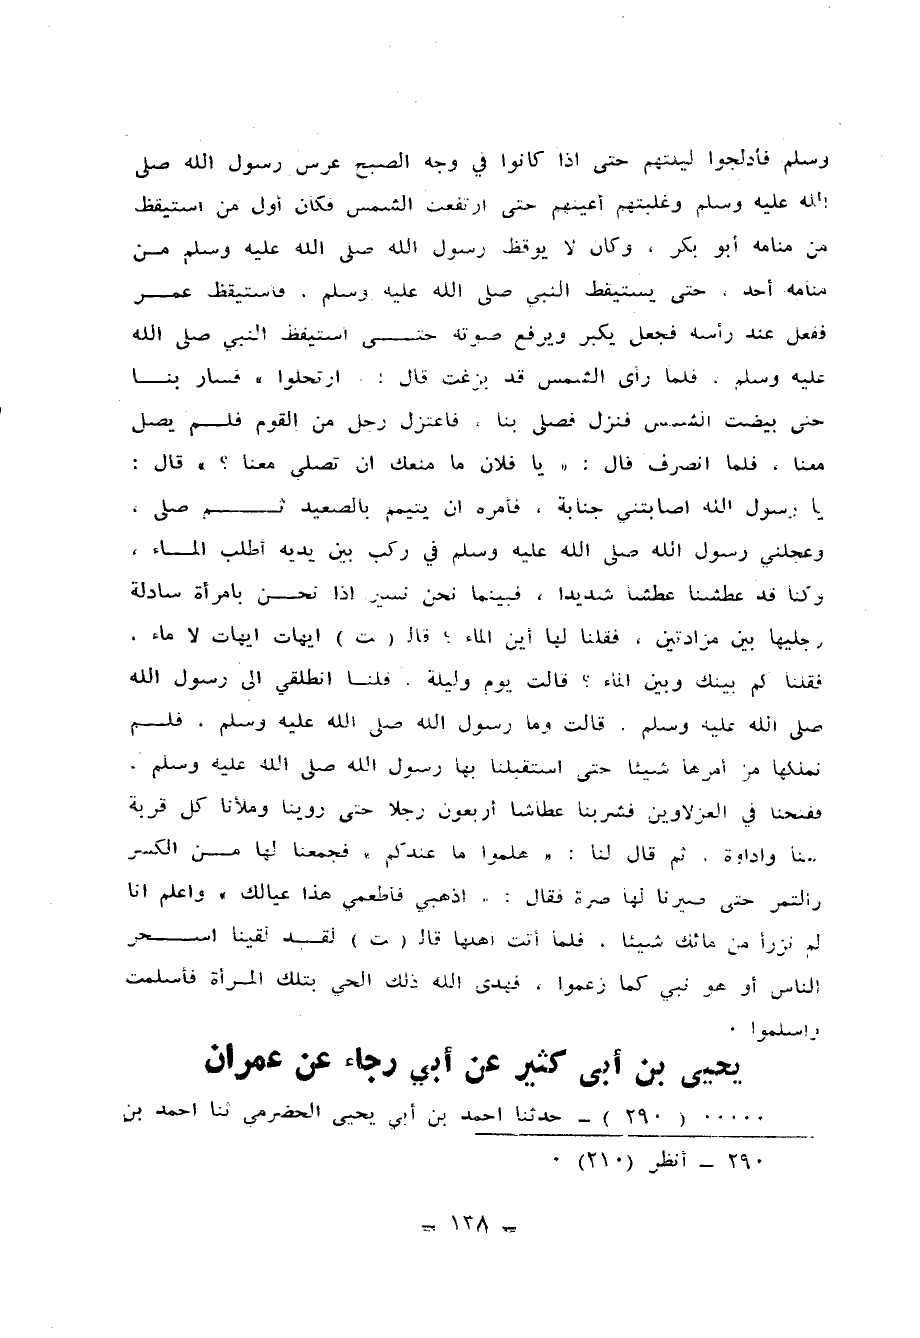 وسلم فأدلجوا ليلتهم حتى اذا كانوا في وجه الصبح عرس رسول الله صلى
الله عليه وسلم وغلبتهم أعينهم حتى ارتفعت الشمس فكان أول من استيقظ
من منامه أبو بكر ، وكان لا يوقظ رسول الله صلى الله عليه وسلم من
منامه أحد ، حتى يستيقظ النبي صلى الله عليه وسلم . فاستيقظ عمر
ففعل عند رأسه فجعل يكبر ويرفع صوته حتى استيقظ النبي صلى الله
عليه وسلم . فلما رأى الشمس قد بزغت قال : ارتحلوا » فسار بنا
حتى بيضت الشمس فنزل فصلى بنا ، فاعتزل رجل من القوم فلم يصل
معنا ، فلما انصرف قال : « يا فلان ما منعك ان تصلي معنا ؟ » قال :
يا رسول الله اصابتني جنابة ، فأمره ان يتيمم بالصعيد ثم صلى ،
وعجلني رسول الله صلى الله عليه وسلم في ركب بين يديه أطلب الماء ،
وكنا قد عطشنا عطشا شديدا ، فبينما نحن نسير اذا نحن بامرأة سادلة
رجليها بين مزادتين ، فقلنا لها أين الماء ؟ قال ( ت ) ايهات ايهات لا ماء .
فقلنا كم بينك وبين الماء ؟ قالت يوم وليلة . قلنا انطلقي الى رسول الله
صلى الله عليه وسلم . قالت وما رسول الله صلى الله عليه وسلم . فلم
نملكها من أمرها شيئا حتى استقبلنا بها رسول الله صلى الله عليه وسلم .
ففتحنا في العزلاوين فشربنا عطاشا أربعون رجلا حتى روينا وملأنا كل قربة
منا واداوة . ثم قال لنا : « هلموا ما عندكم » فجمعنا لها من الكسر
والتمر حتى صيرنا لها صرة فقال : « اذهبي فأطعمي هذا عيالك » واعلم انا
لم نزرأ من مائك شيئا . فلما أتت أهلها قال ( ت ) لقد لقينا اسحر
الناس أو هو نبي كما زعموا ، فهدى الله ذلك الحي بتلك المرأة فأسلمت
واسلموا .
يحيى بن أبى كثير عن أبي رجاء عن عمران
..... ( ٢٩٠ ) ــ حدثنا احمد بن أبي يحيى الحضرمي ثنا احمد بن
٢٩٠ ــ أنظر (٢١٠) .
ــ ١٣٨ ــ